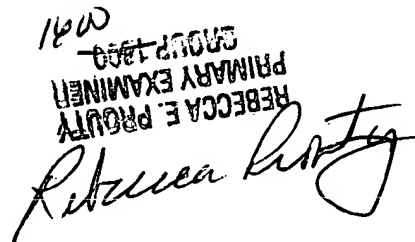 1600
REBECCA E. PROUTY
PRIMARY EXAMINER
GROUP 1800
Rebecca Prouty